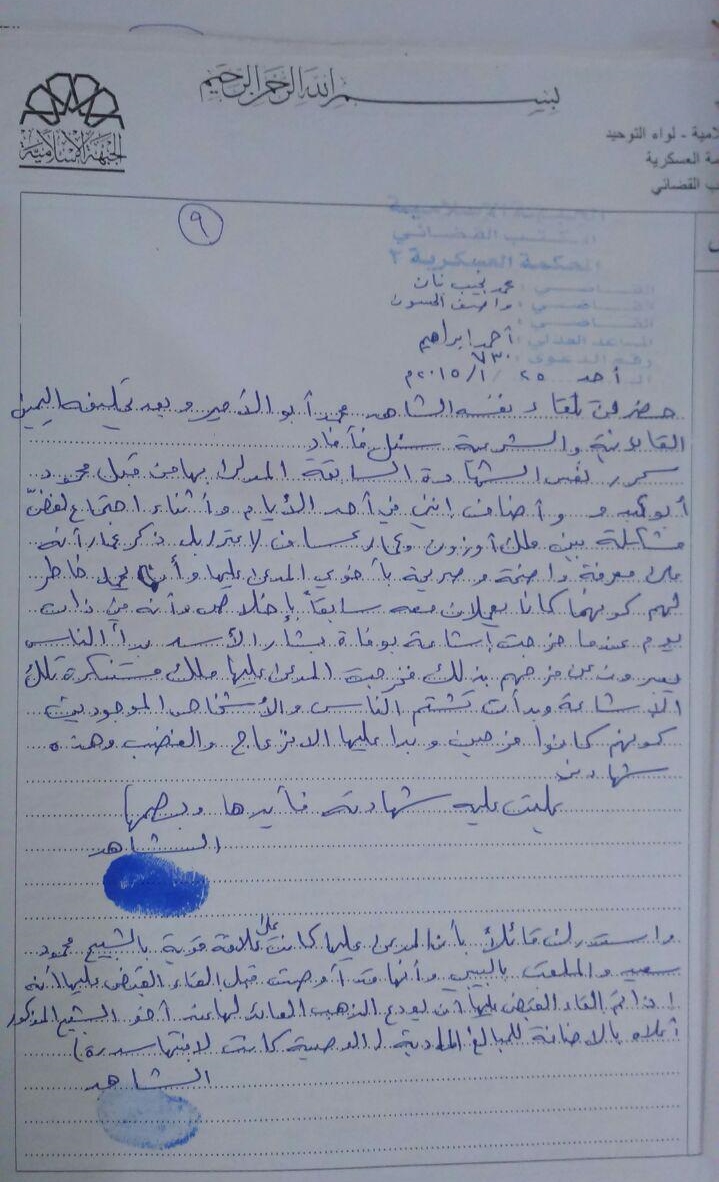 بسم الله الرحمن الرحيم
الجبهة الإسلامية
لامية - لواء التوحيد
مة العسكرية
ب القضائي
٩
الجبهة الاسلامية
المكتب القضائي
المحكمة العسكرية ٢
القاضي: محمد نجيب بنان
القاضي: واصف الحسون
القاضي:
المساعد العدلي: أحمد ابراهيم
رقم الدعوى: ٧٣٠
الأحد ٢٥ / ١ / ٢٠١٥م
حضر من تلقاء نفسه الشاهد محمد أبو الأمير وبعد تحليفه اليمين
القانونية والشرعية سئل فأفاد
سكرر نفس الشهادة السابقة المدلى بها من قبل محمود
أبو وأضاف إنني في أحد الأيام وأثناء اجتماع لفض
مشكلة بين ملك أوزون وعمار عساف لاعتر بل ذكر عمار أنه
على معرفة واضحة وصريحة بأخوي المدعى عليها وأنه خاطر
لهم كونهما كانا يعملان معه سابقاً بإخلاص وأنه من ذات
يوم عندما خرجت إشاعة بوفاة بشار الأسد بدأ الناس
يعبرون عن فرحهم بذلك فخرجت المدعى عليها ملك مستنكرة تلك
الإشاعة وبدأت تشتم الناس والأشخاص الموجودين
كونهم كانوا فرحين وبدا عليها الانزعاج والغضب وهذه
شهادتي
تليت عليه شهادته فأيدها وبصمها
الشاهد
واستدرك قائلاً بأن المدعى عليها كانت على علاقة قوية بالشيخ محمود
سعيد والملقب وأنها قد أوصت قبل القاء القبض عليها أنه
إذا تم القاء القبض عليها أن يودع الذهب العائد لها عند أخو الشيخ المذكور
أعلاه بالاضافة للمبالغ المادية (الوصية كانت لابنتها سدرة)
الشاهد